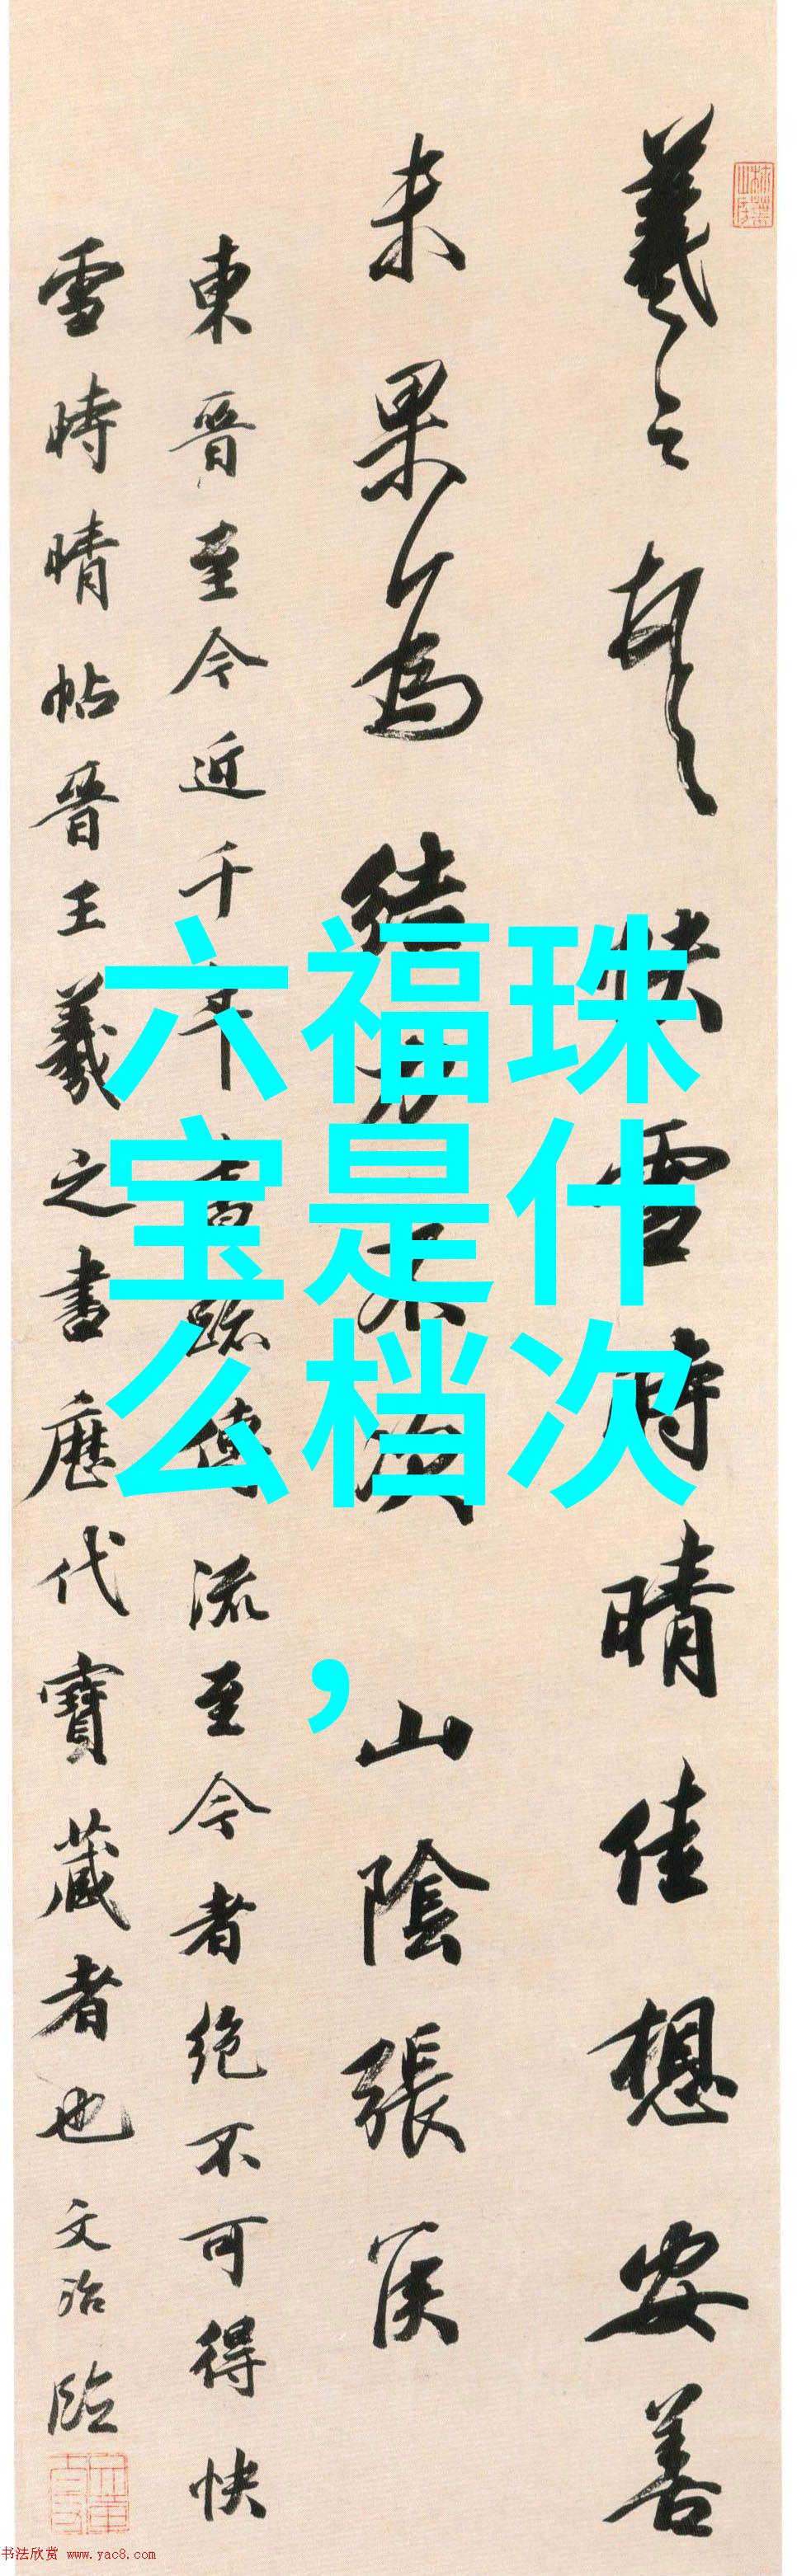 羲之頓首快雪時晴佳想安善
未果為結力不次 山陰張侯
東晉至今近千年書跡傳流至今者絕不可得快
雪時晴帖晉王羲之書歷代寶藏者也文治臨
六福珠
宝是什
么档次
，
书法欣赏 www.yac8.com